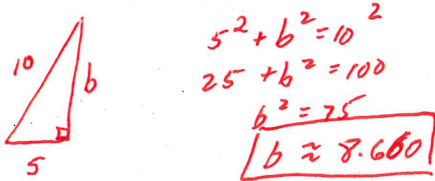 10
b
5
5² + b² = 10²
25 + b² = 100
b² = 75
b ≈ 8.660